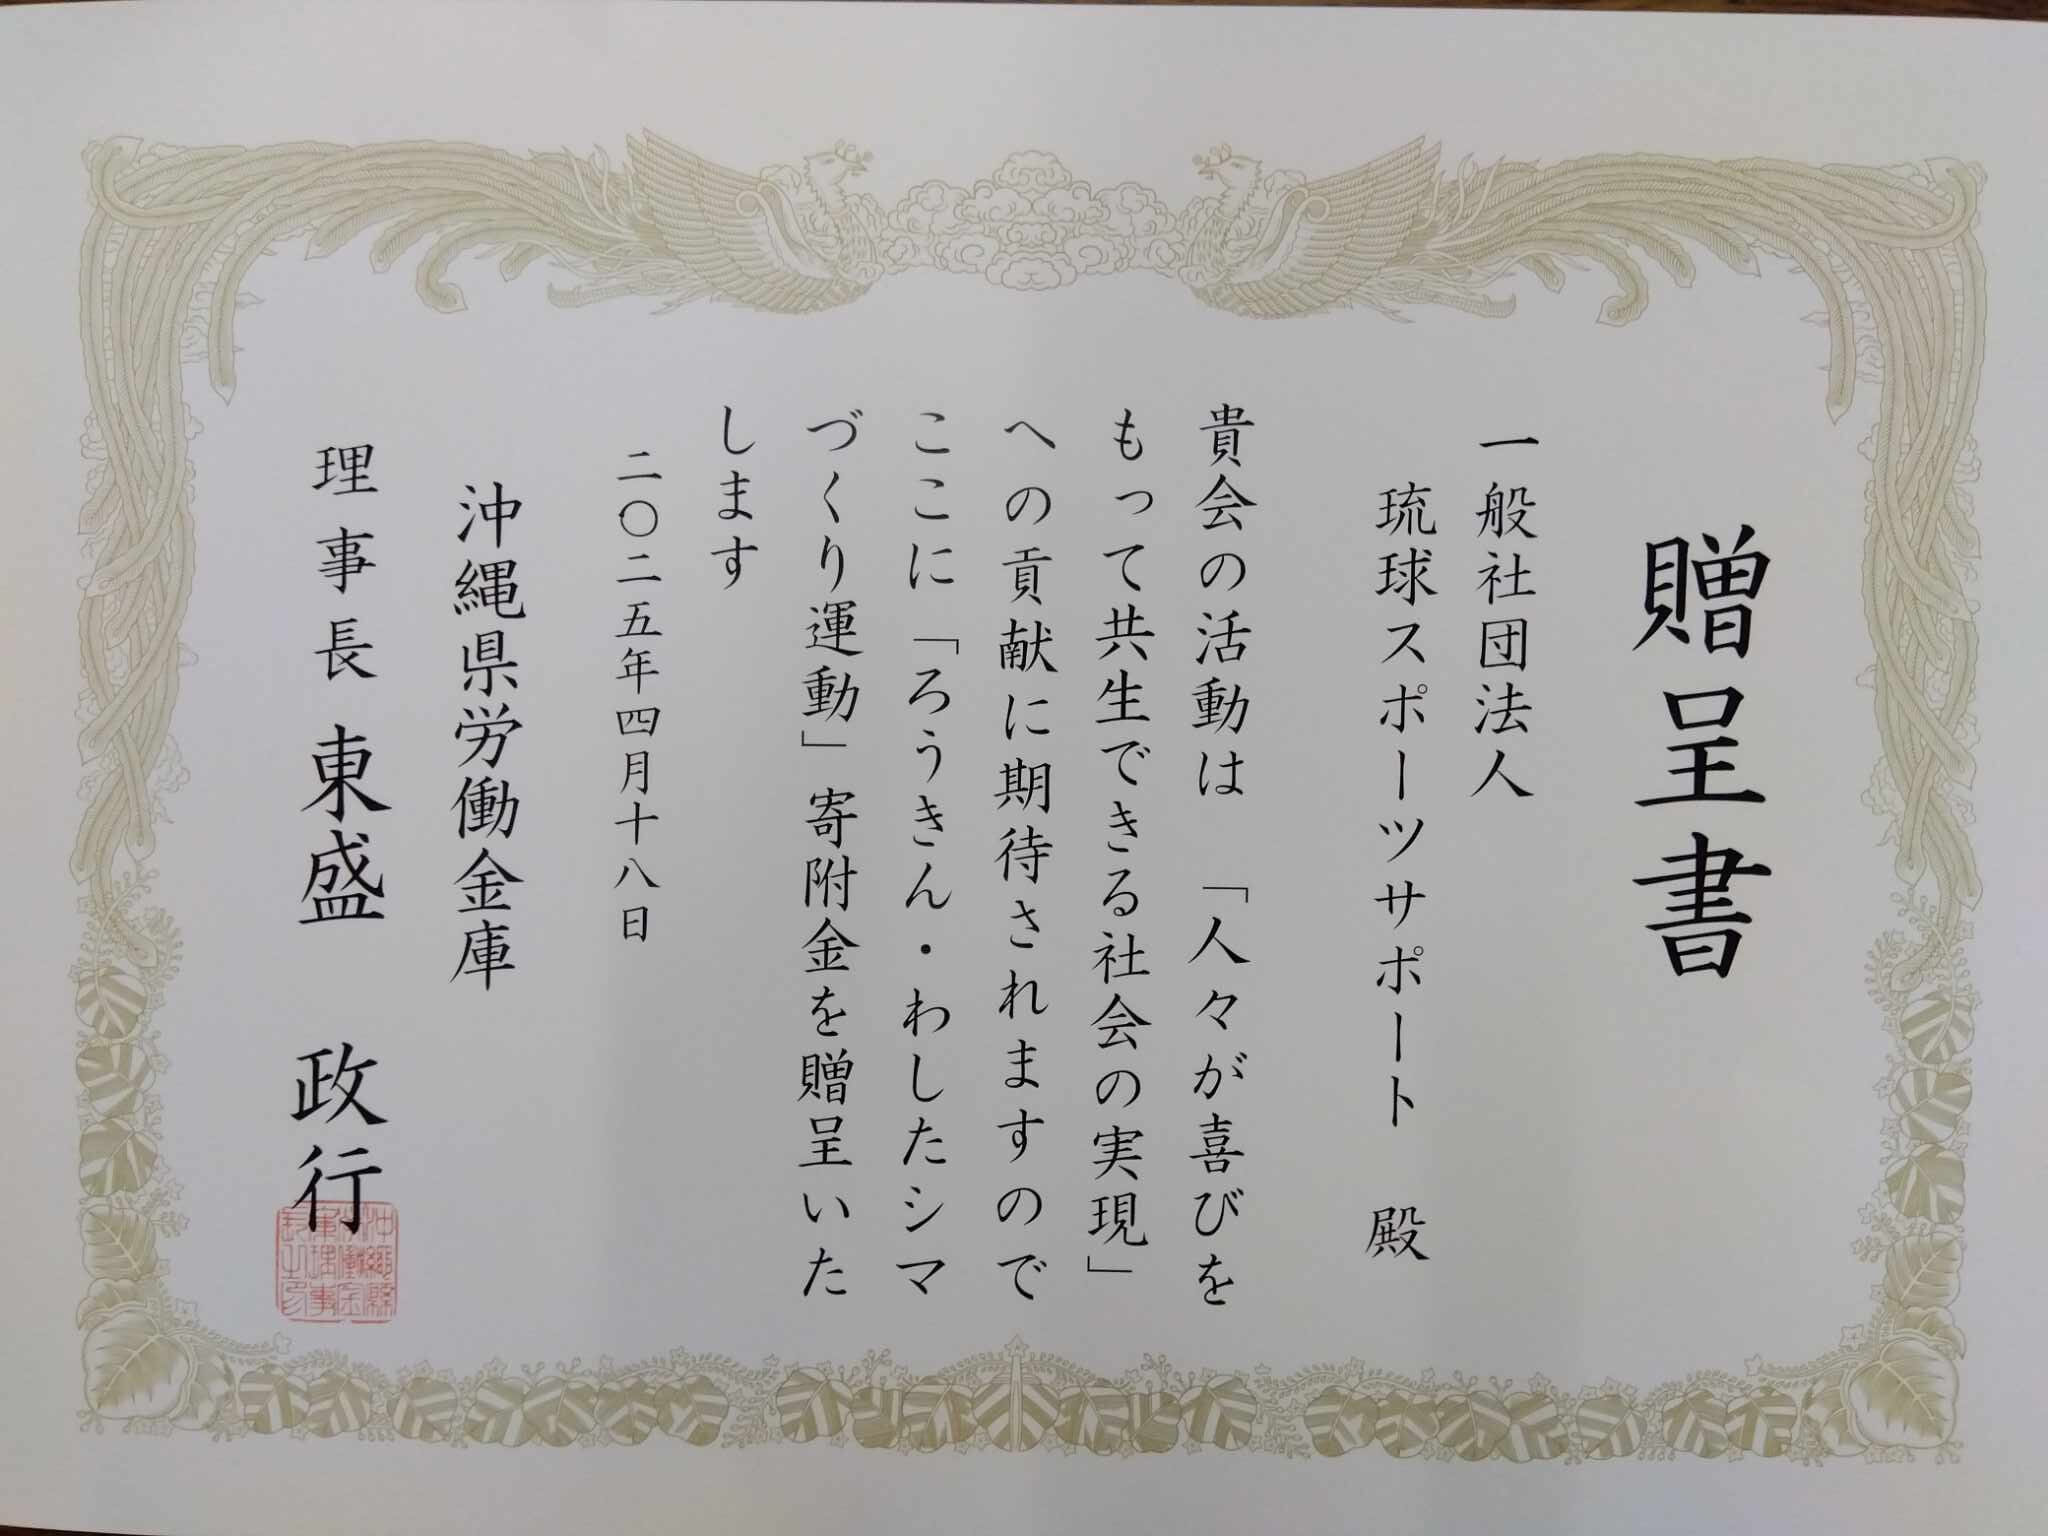 贈呈書
一般社団法人
琉球スポーツサポート 殿
貴会の活動は 「人々が喜びを
もって共生できる社会の実現」
への貢献に期待されますので
ここに「ろうきん・わしたシマ
づくり運動」寄附金を贈呈いた
します
二〇二五年四月十八日
沖縄県労働金庫
理事長 東盛 政行